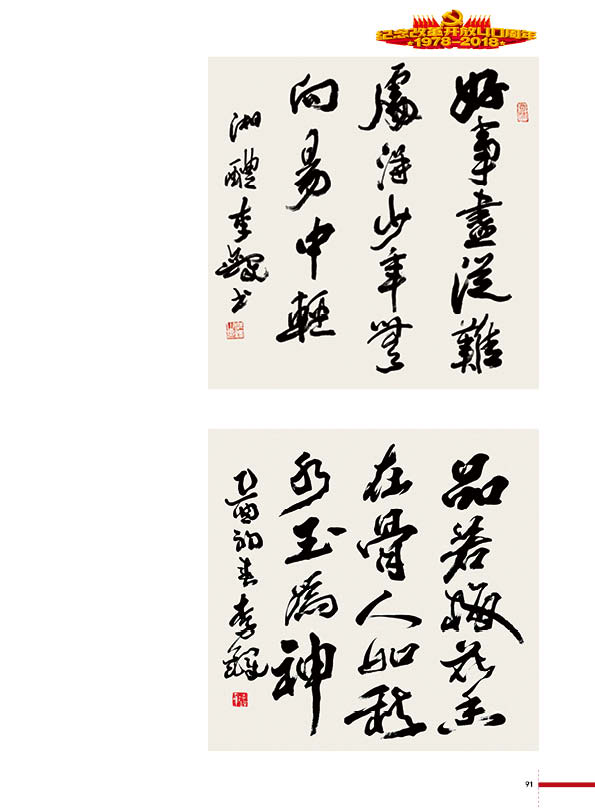 纪念改革开放40周年
1978-2018
好事盡從難
處得少年無
向易中輕
湘醴李鐸书
品若梅花香
在骨人如秋
水玉為神
乙酉初春李鐸
91